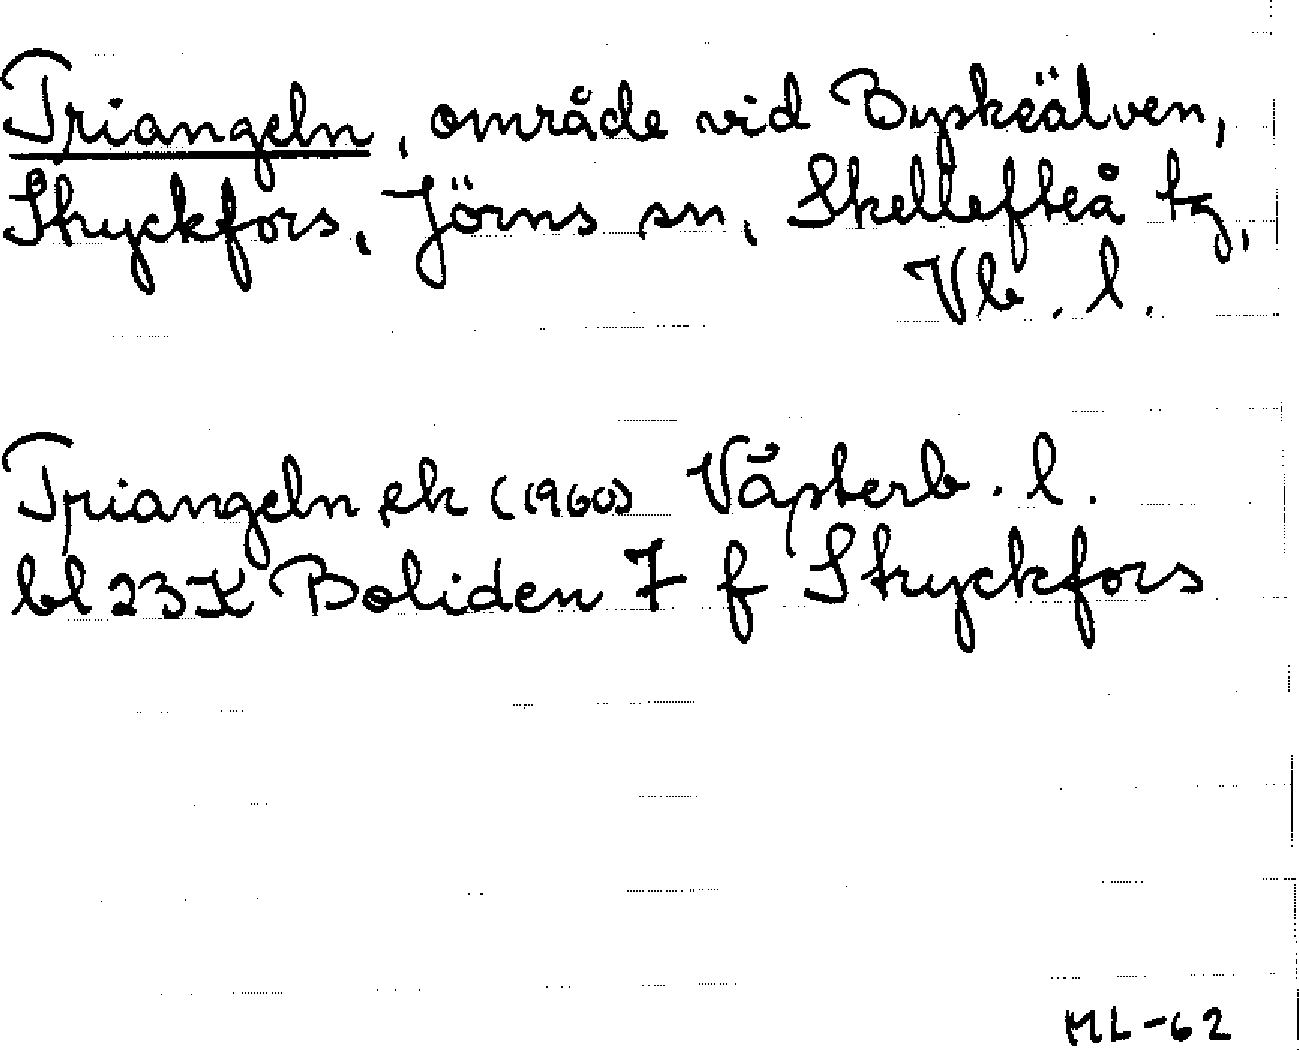 Triangeln, område vid Byskeälven,
Stryckfors, Jörns sn, Skellefteå tg,
Vb. l.
Triangeln ek (1960) Västerb. l.
bl 23K Boliden 7 f Stryckfors
ML-62